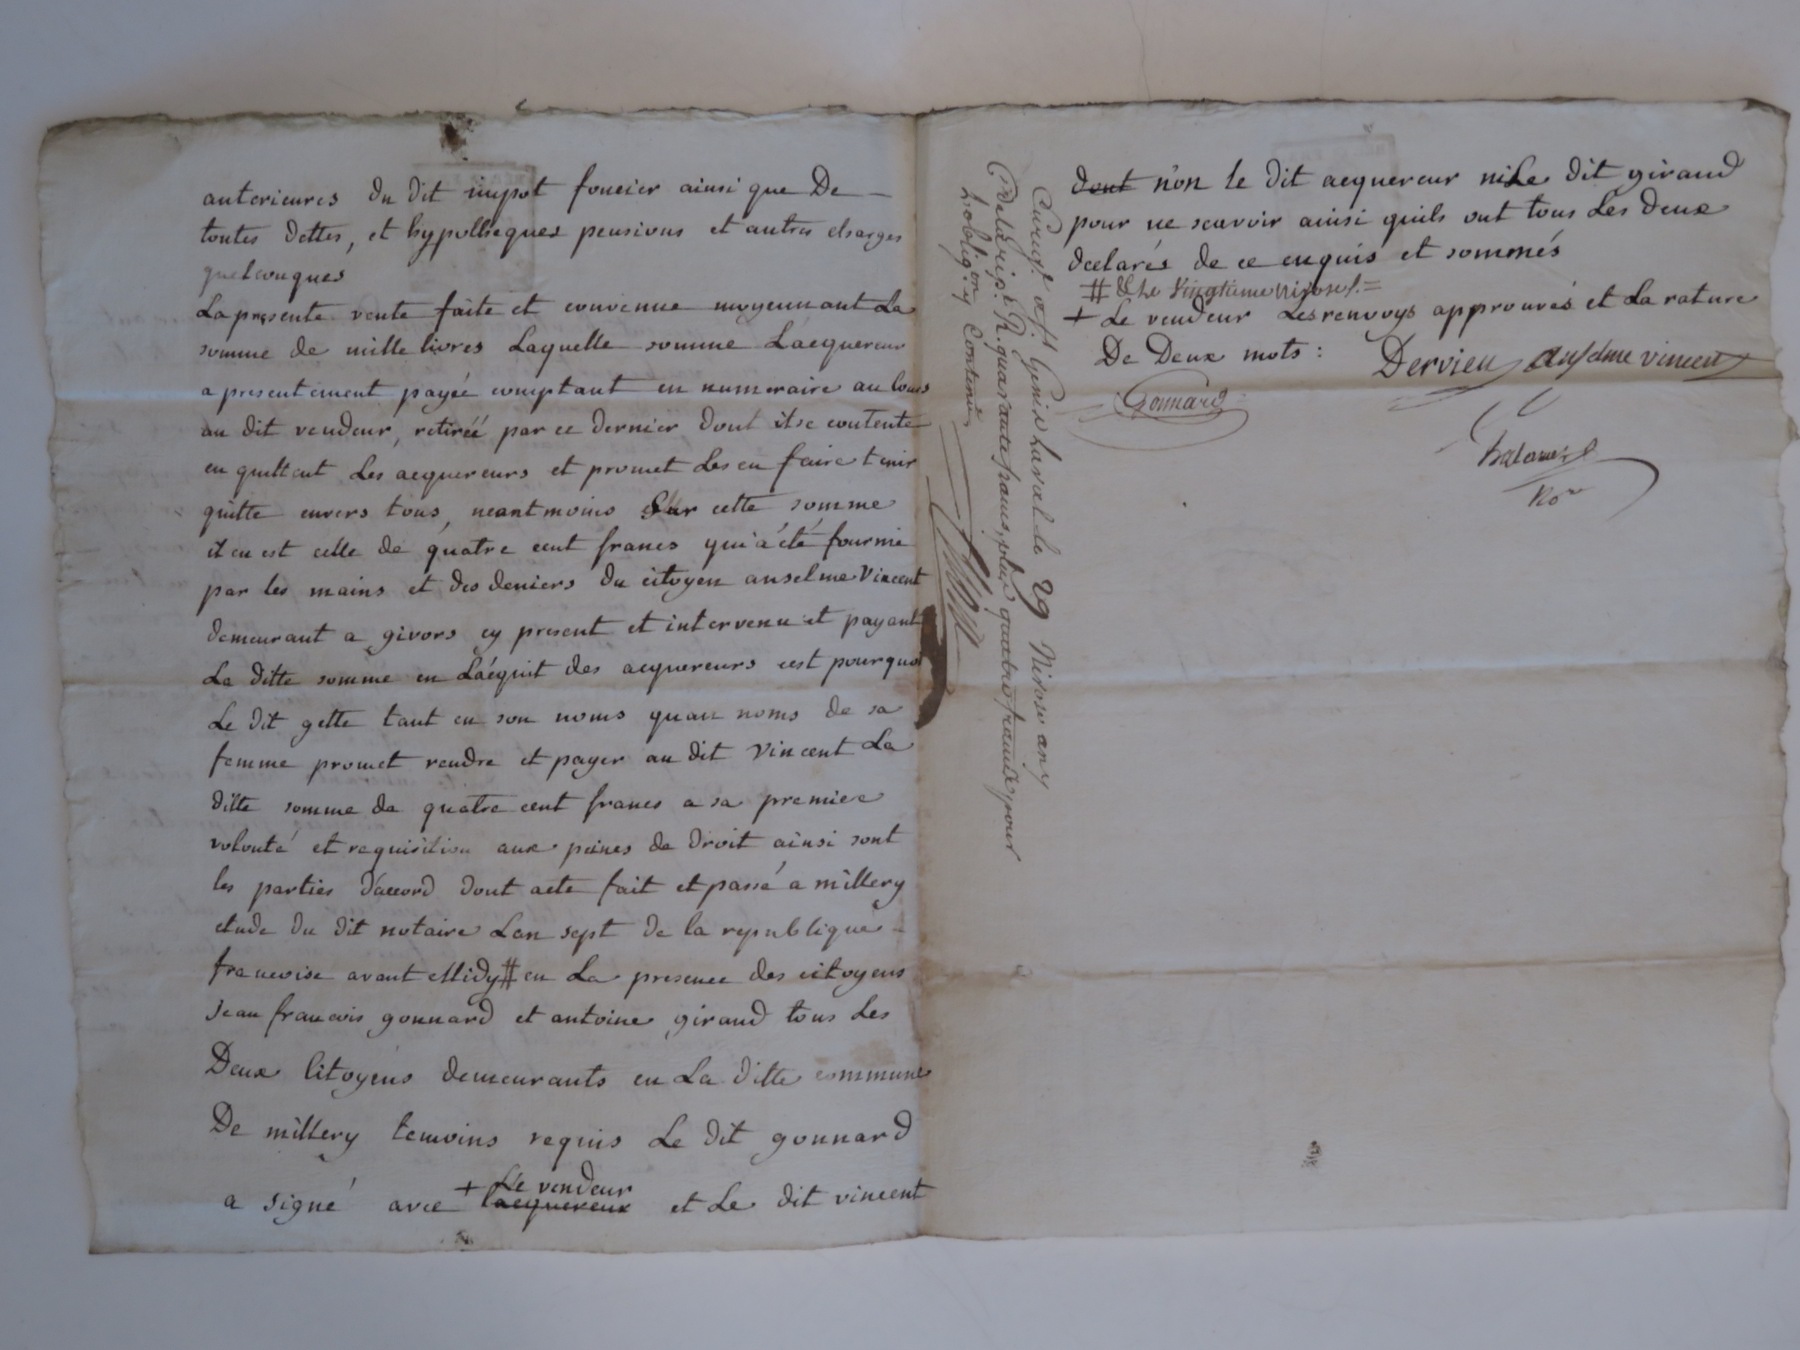 anterieures du dit impot foncier ainsi que De
toutes dettes, et hypotheques pensions et autres charges
quelconques
La presente vente faite et convenue moyennant La
somme de mille livres Laquelle somme Lacquereur
a presentement payée comptant en numeraire au cours
au dit vendeur, retirée par ce dernier dont il se contente
en quittent Les acquereurs et promet Les en faire tenir
quitte envers tous, neantmoins Sur cette somme
il en est celle de quatre cent francs qui a été fournie
par les mains et des deniers du citoyen anselme Vincent
demeurant a givors cy present et intervenu et payant
La ditte somme en Lacquit des acquereurs cest pourquoi
Le dit gette tant en son noms quau noms de sa
femme promet rendre et payer au dit Vincent La
ditte somme de quatre cent francs a sa premiere
volonté et requisition aux peines de droit ainsi sont
les parties daccord dont acte fait et passé a millery
etude du dit notaire Lan sept de la republique
francoise avant Midy # en La presence des citoyens
Jean francois gonnard et antoine giraud tous Les
Deux Citoyens demeurants en La ditte commune
De millery temoins requis Le dit gonnard
a signé avec + Le vendeur
lacquereur et Le dit vincent
Enreg.t a s.t Genis Laval le 29 Nivose an 7
R. quarante francs, plus quatre francs pour
Lobligon y Contenue
dont non le dit acquereur ni Le dit giraud
pour ne scavoir ainsi quils ont tous Les deux
declarés de ce enquis et sommés
# Le Vingtieme nivose
+ Le vendeur Les renvoys approuvés et La rature
De Deux mots :
Dervieu anselme vincent
Gonnard
No.re